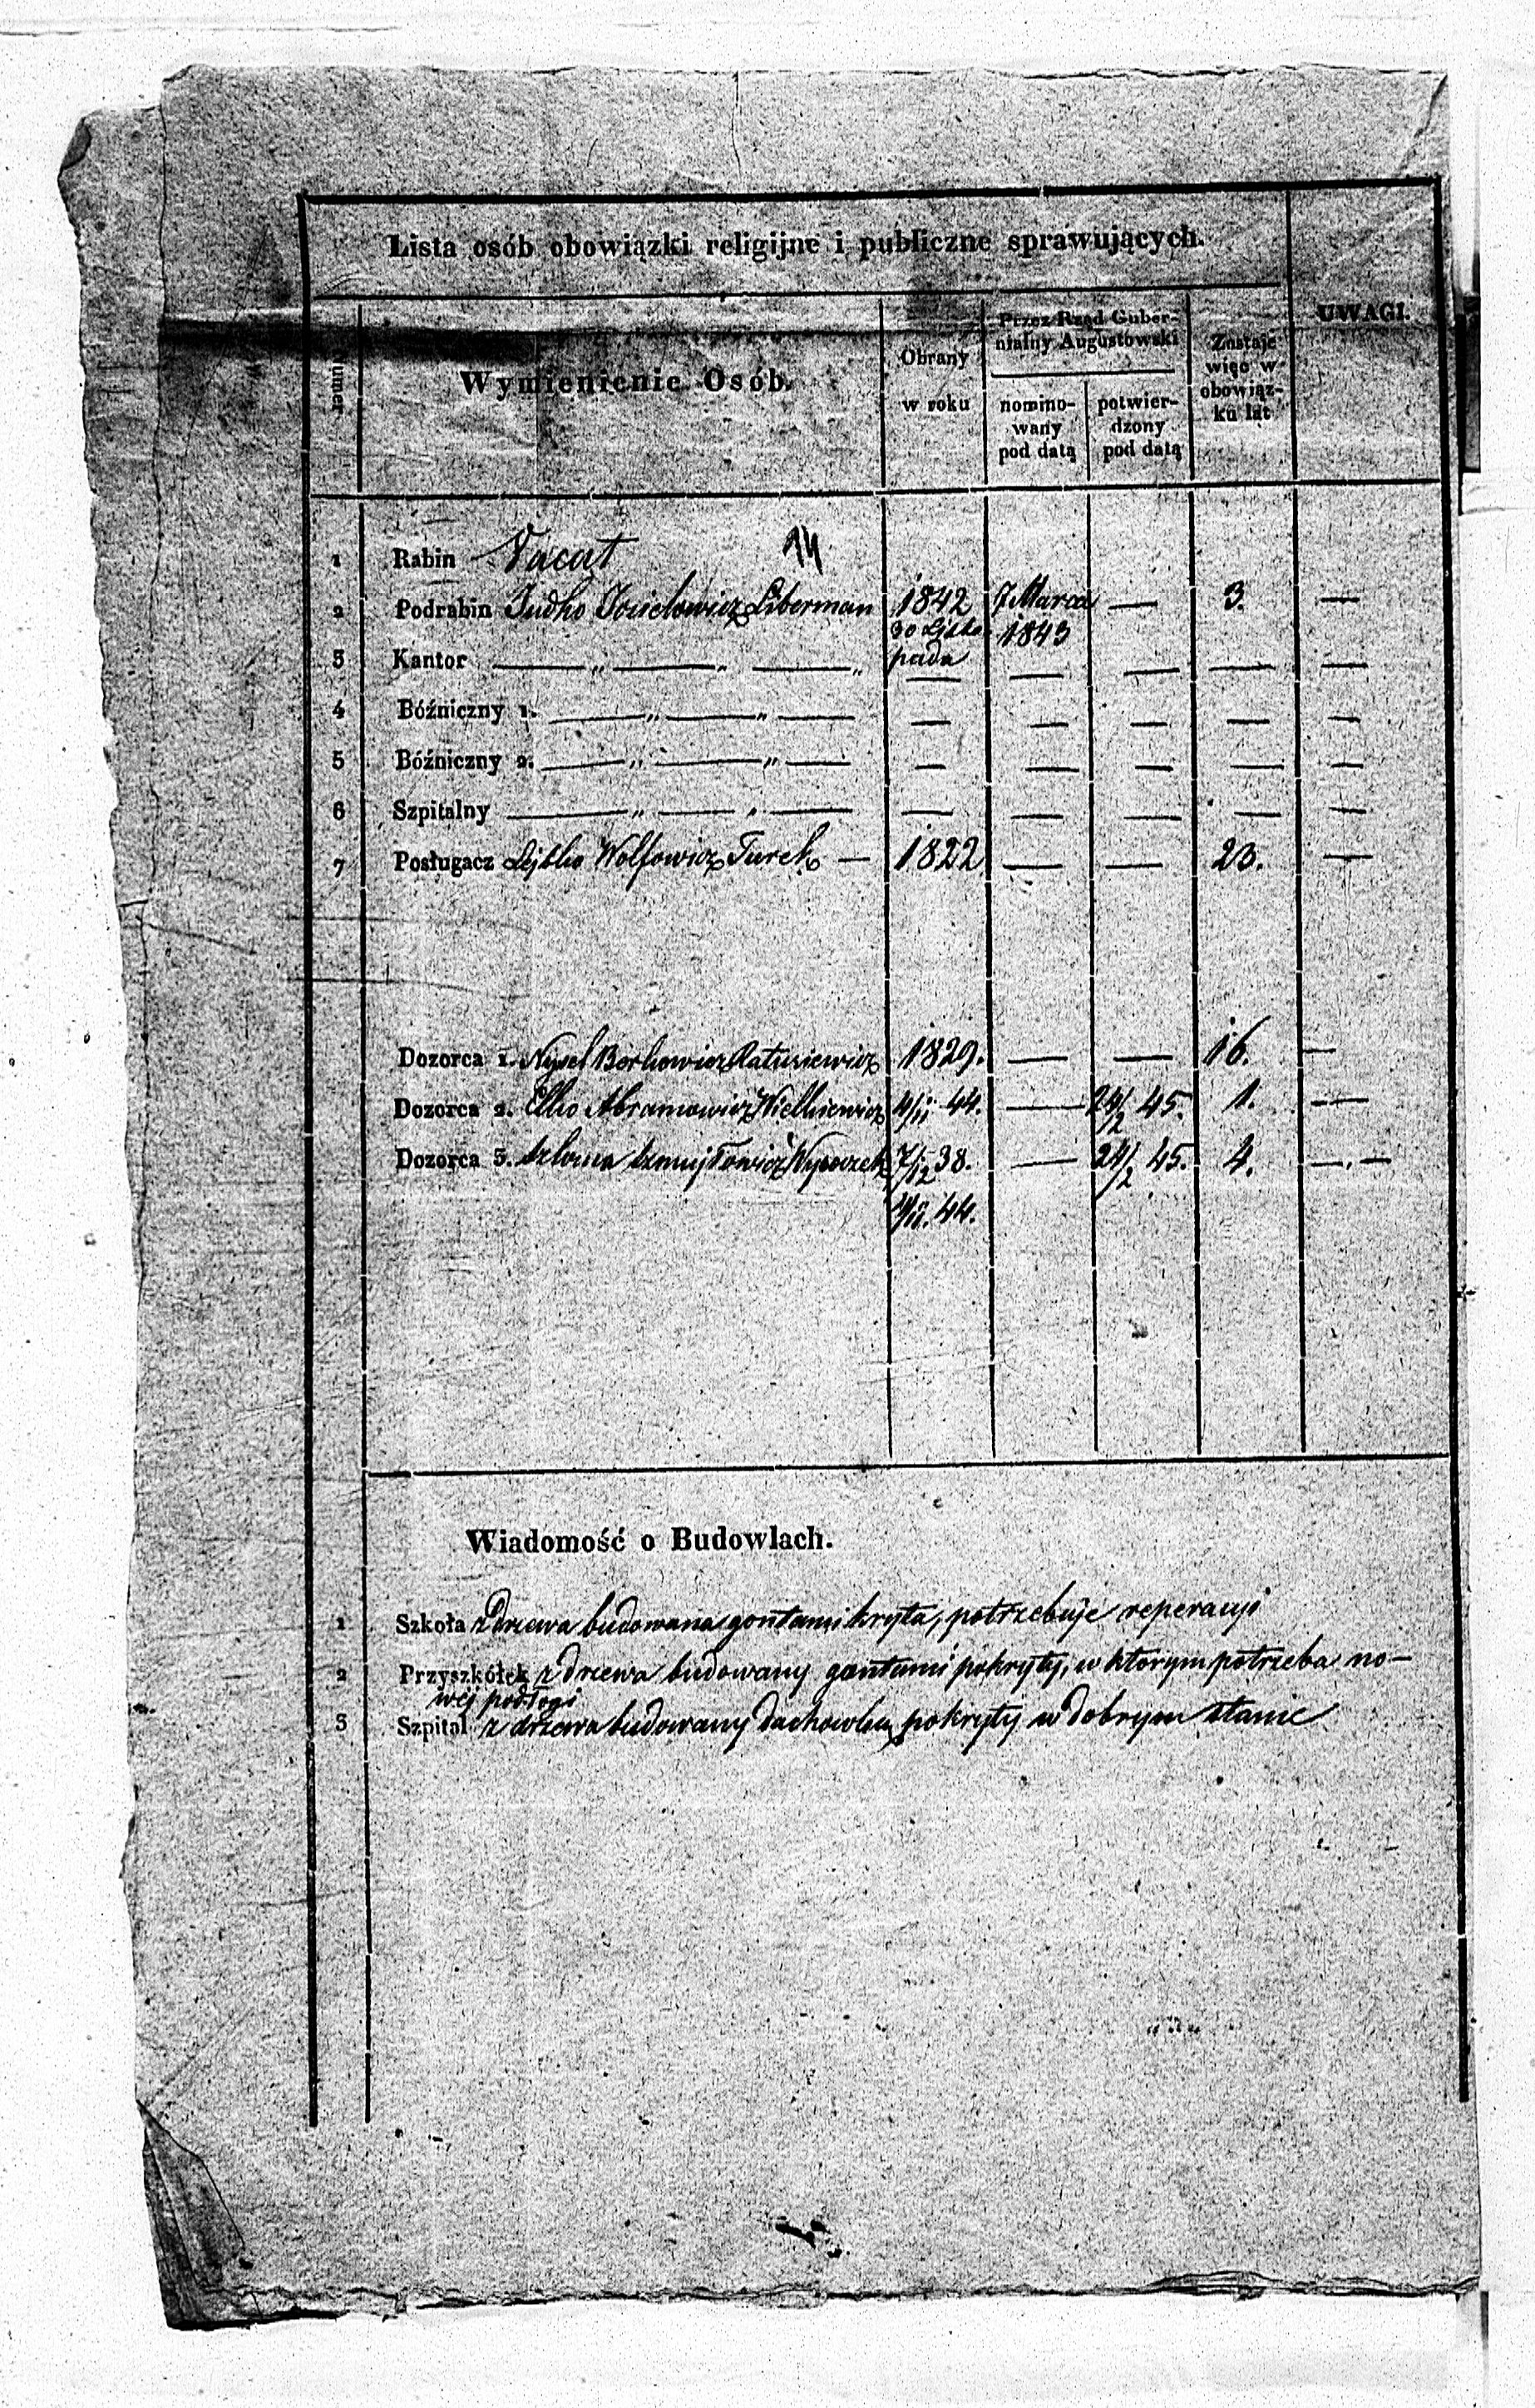 Lista osób obowiązki religijne i publiczne sprawujących.
UWAGI.
Numer
Wymienienie Osób.
Obrany
w roku
Przez Rząd Guber-
nialny Augustowski
nomino-
wany
pod datą
potwier-
dzony
pod datą
Zostaje
więc w
obowiąz-
ku lat
1 Rabin Vacat 14
2 Podrabin Judko Joselowicz Liberman 1842 7 Marca — 3. —
30 Listo- 1843
pada
3 Kantor — „ — „ — „ — — — — —
4 Bóźniczny 1. — „ — „ — — — — — —
5 Bóźniczny 2. — „ — „ — — — — — —
6 Szpitalny — „ — „ — — — — — —
7 Posługacz Lejbko Wolfowicz Turek — 1822 — — 23. —
Dozorca 1. Berkowicz Ratusiewicz 1829. — — 16. —
Dozorca 2. Elko Abramowicz 4/11 44. — 24/2 45. 1. —
Dozorca 3. Szloma Szmujłowicz Wysoczek 7/12 38. — 24/2 45. 4. —.—
4/11. 44.
Wiadomość o Budowlach.
1 Szkoła z drzewa budowana gontami kryta, potrzebuje reperacyi
2 Przyszkółek z drzewa budowany gontami pokryty, w ktorym potrzeba no-
wéj podłogi
3 Szpital z drzewa budowany dachowką pokryty w dobrym stanie